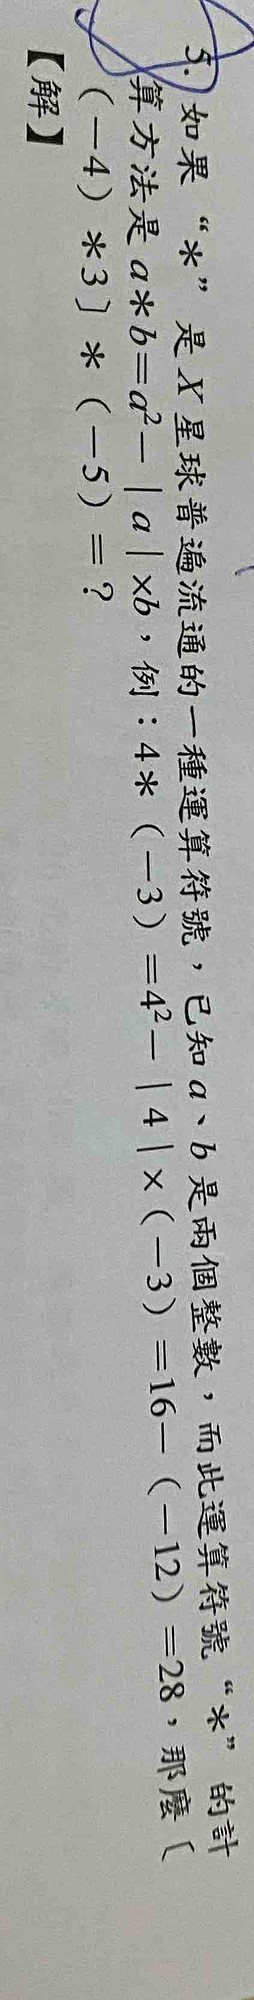 5. 如果 “*” 是X星球普遍流通的一種運算符號，已知a、b是兩個整數，而此運算符號 “*” 的計
算方法是a*b=a²－｜a｜×b，例：4*（－3）=4²－｜4｜×（－3）=16－（－12）=28，那麼〔
（－4）*3〕*（－5）=？
【解】